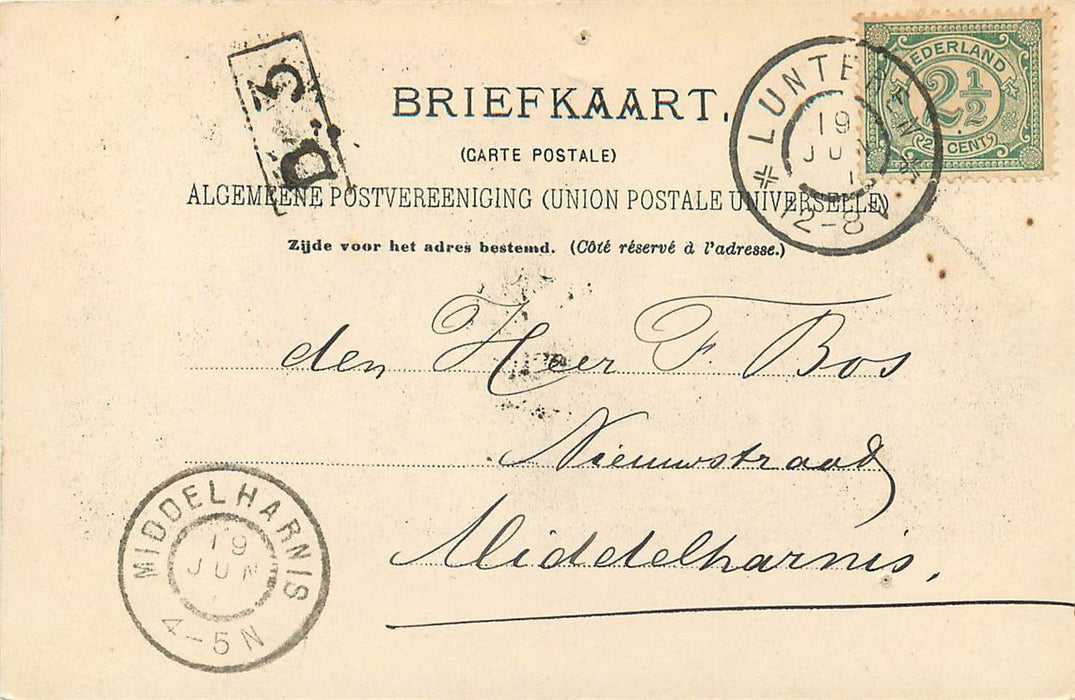 D. 3
BRIEFKAART.
(CARTE POSTALE)
ALGEMEENE POSTVEREENIGING (UNION POSTALE UNIVERSELLE)
Zijde voor het adres bestemd. (Côté réservé à l'adresse.)
NEDERLAND
2½
CENT
LUNTEREN
19
JUN
12-8V
den Heer F. Bos
Nieuwstraad
Middelharnis.
MIDDELHARNIS
19
JUN
4-5N